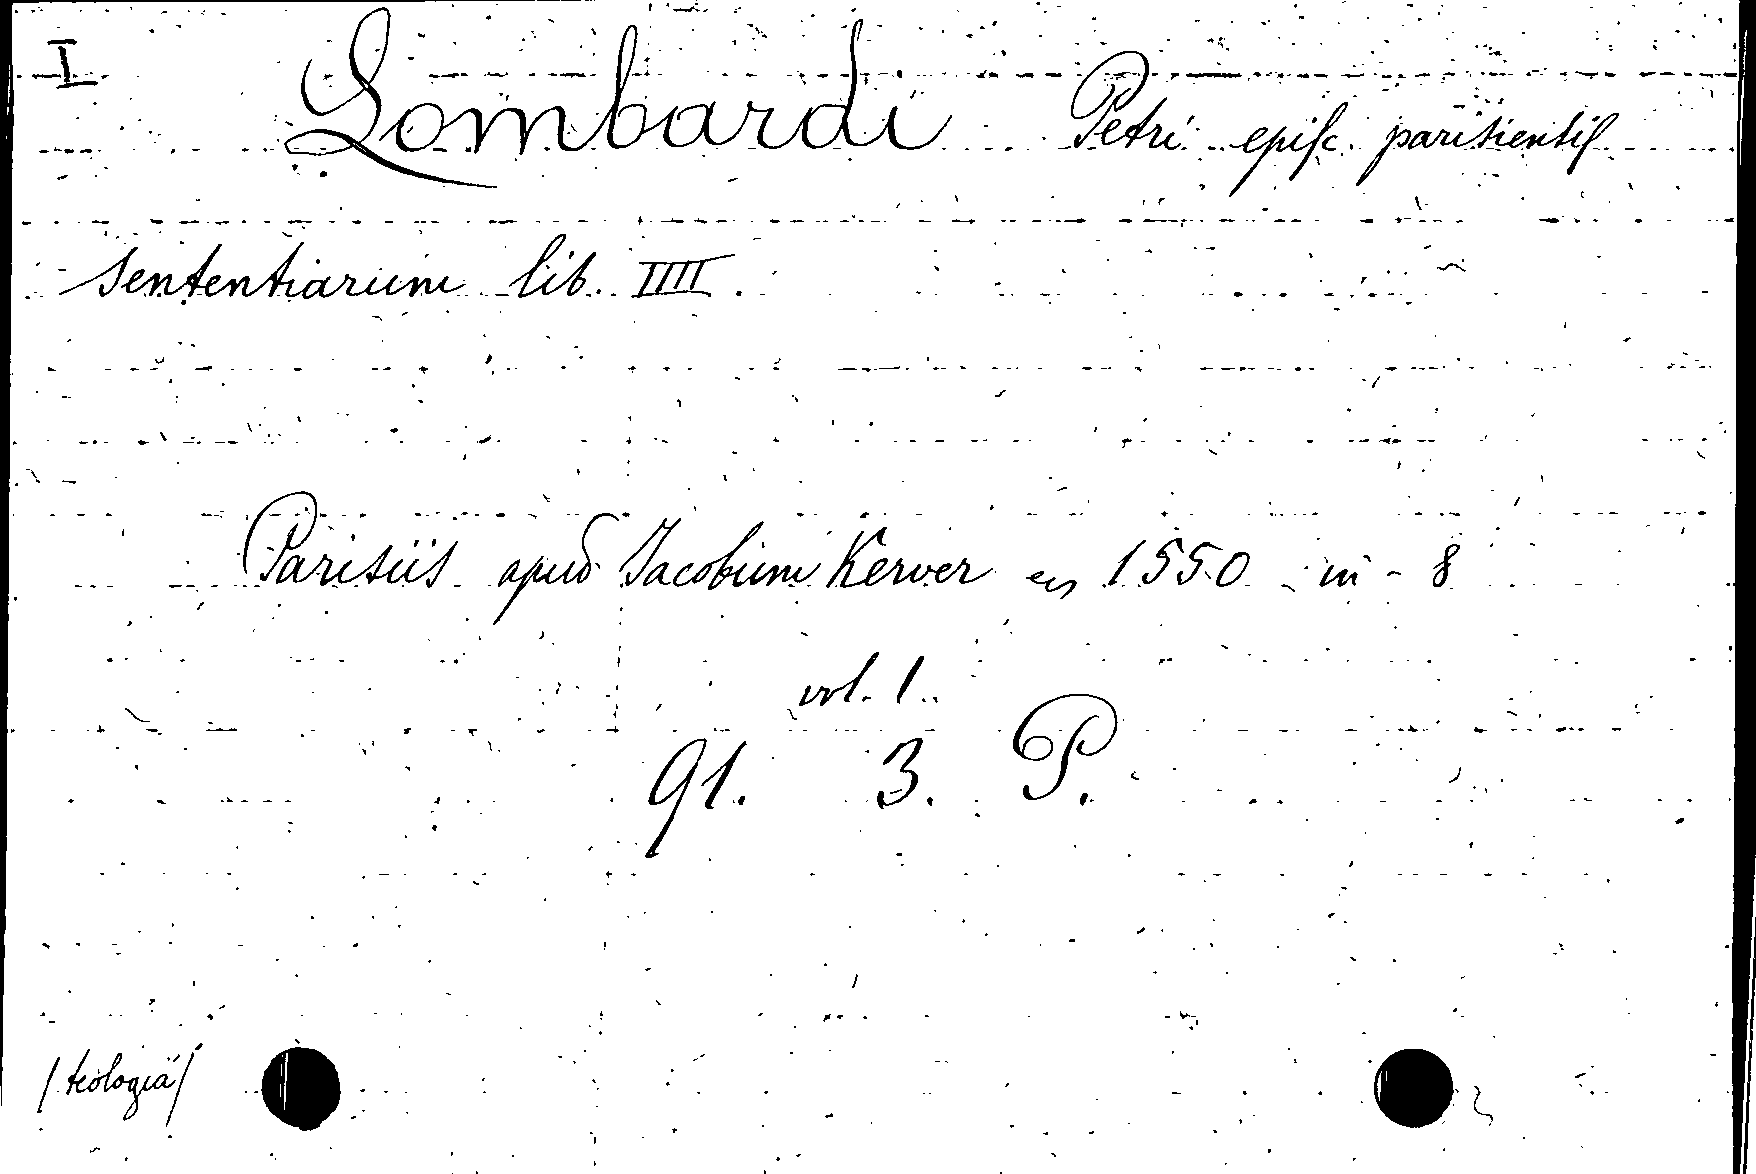 I
Lombardi Petri episc. parisiensis
Sententiarum lib. IIII.
Parisiis apud Jacobum Kerver en 1550 in - 8
vol. 1.
91. 3. P.
/teologia/